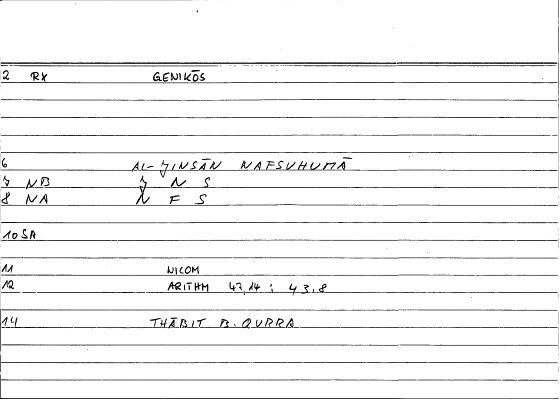 2 RX GENIKŌS
6 AL-JINSĀN NAFSUHUMĀ
7 NB J N S
8 NA N F S
10 SA
11 NICOM
12 ARITHM 43,14 : 43.8
14 THĀBIT B. QURRA